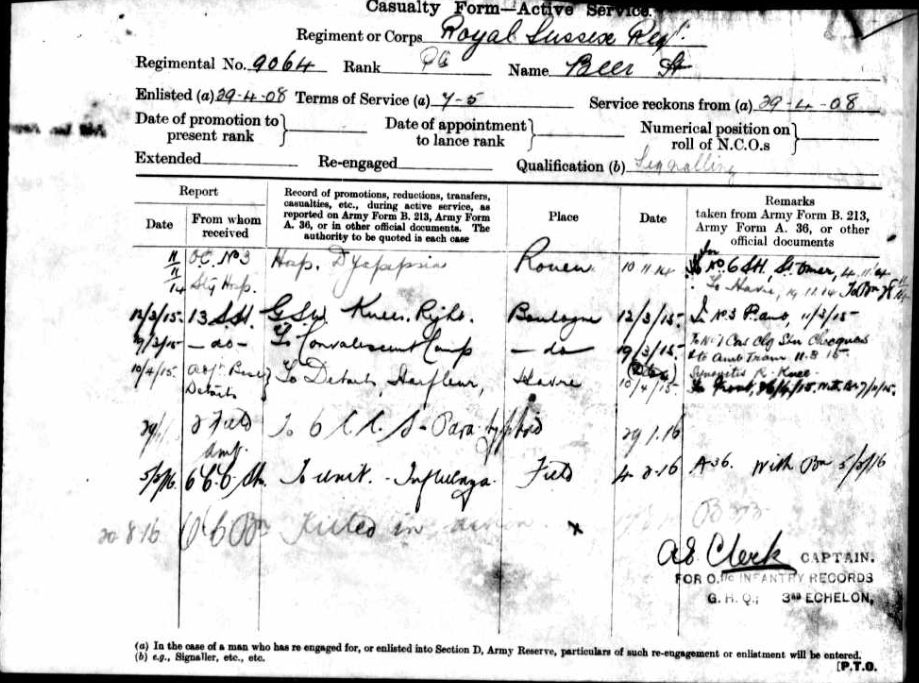 Casualty Form—Active Service.
Regiment or Corps Royal Sussex Regt.
Regimental No. 9064 Rank Pte Name Beer
Enlisted (a) 29-4-08 Terms of Service (a) 7-5 Service reckons from (a) 29-4-08
Date of promotion to present rank } Date of appointment to lance rank } Numerical position on roll of N.C.O.s }
Extended Re-engaged Qualification (b) Signalling
Report
Date
From whom received
Record of promotions, reductions, transfers, casualties, etc., during active service, as reported on Army Form B. 213, Army Form A. 36, or in other official documents. The authority to be quoted in each case
Place
Date
Remarks
taken from Army Form B. 213, Army Form A. 36, or other official documents
11/11/14 O.C. No 3 Hosp. Dyspepsia Rouen 10 11 14 No. 6 S.H. St. Omer, 4.11.14
Havre,
12/3/15. 13 S.H. G.S.W. Knee. Right. Boulogne 12/3/15. 11/3/15
19/3/15 — do — To Convalescent Camp — do — 19/3/15 To No 1 Cas Clg Stn Chocques
to Amb Train 11.3.15
Synovitis R. Knee
10/4/15. Base Details } To Details, Harfleur, Havre 10/4/15.
29/1 2 Field Amb. To 6 C.C.S - Para typhoid 29 1.16
5/2/16. 6 C.C. Stn. To unit. - Influenza. Field 4 2-16 A36. With Bn 5/2/16
20 8 16 O C Bn Killed in action x
A E Clerk CAPTAIN.
FOR O. i/c INFANTRY RECORDS
G. H. Q.; 3RD ECHELON,
(a) In the case of a man who has re engaged for, or enlisted into Section D, Army Reserve, particulars of such re-engagement or enlistment will be entered.
(b) e.g., Signaller, etc., etc.
[P.T.O.